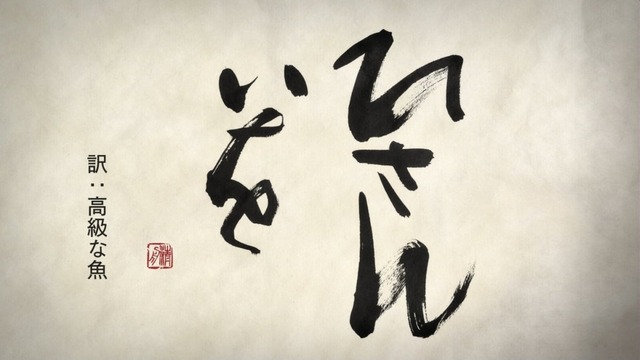 ひさん
いを
訳：高級な魚